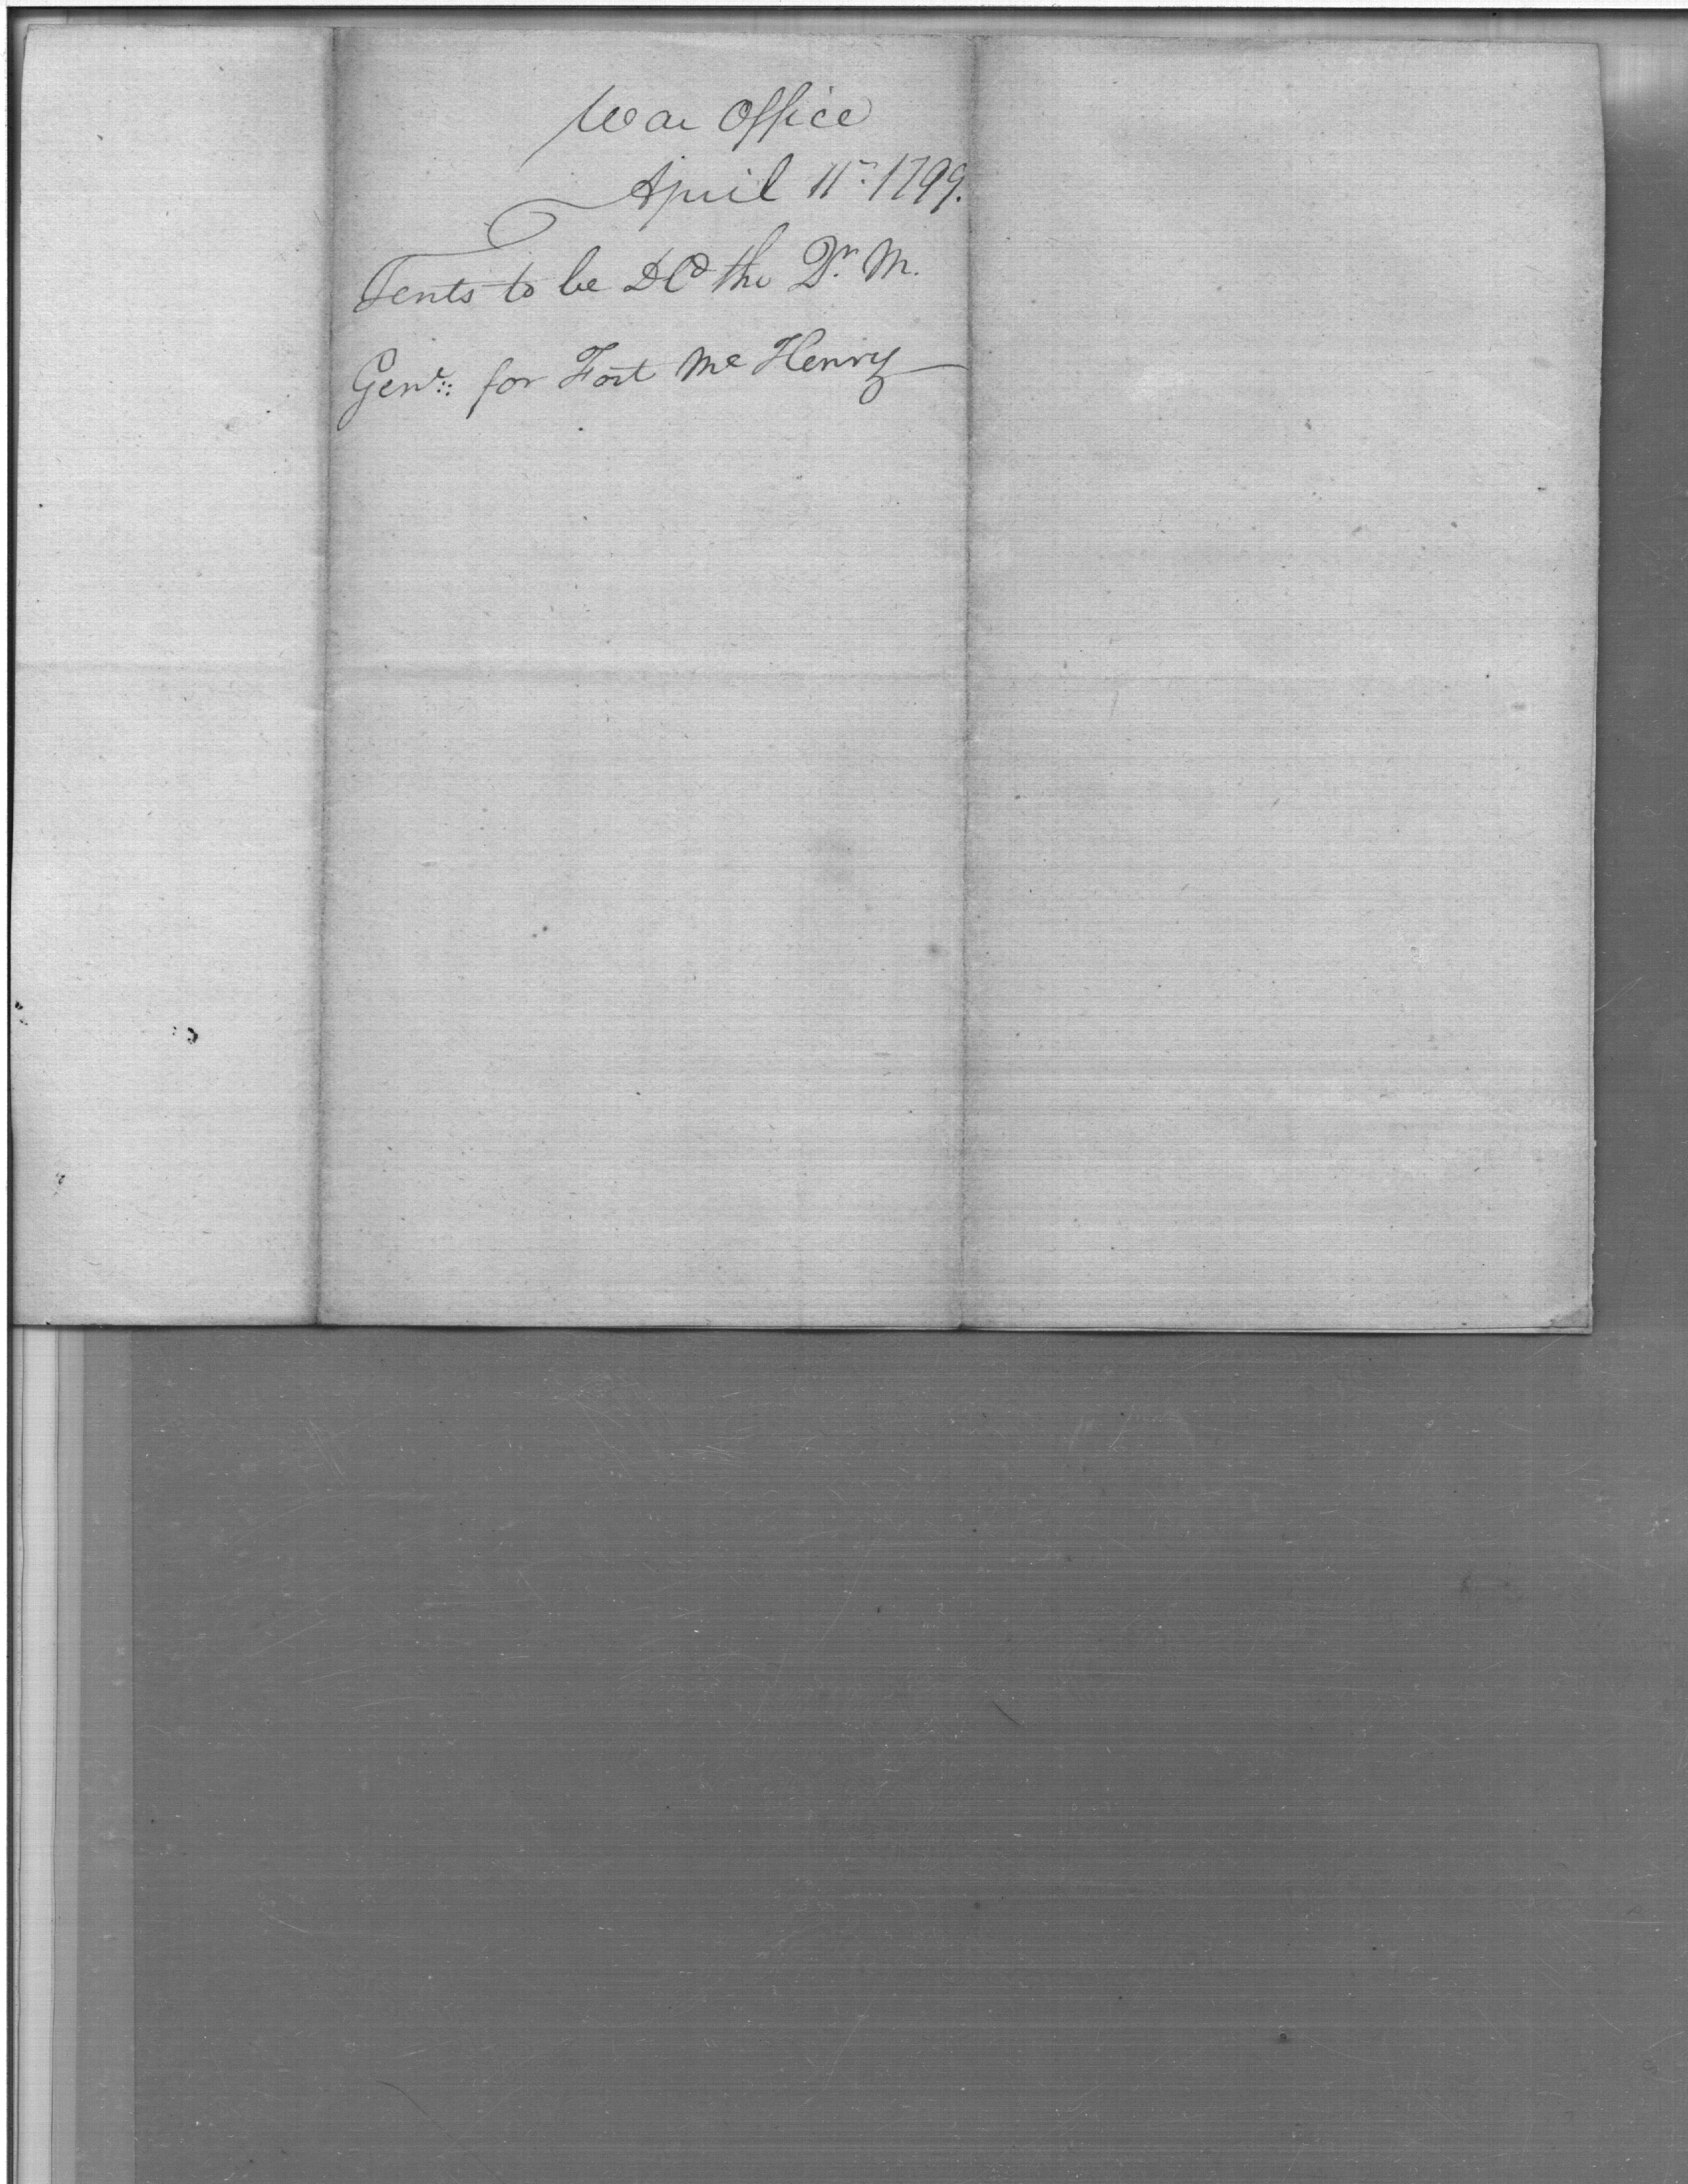 War Office
April 11th 1799.
Tents to be Dld the Qr. M.
Genl: for Fort Mc Henry